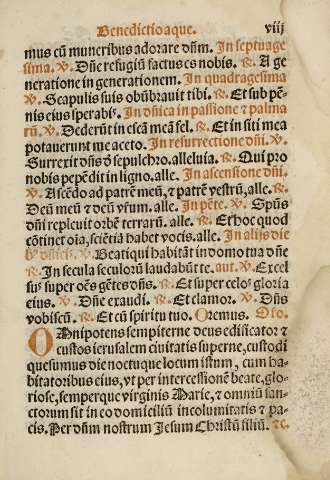 Benedictio aque. viij
mus cũ muneribus adorare dñm. In septuage
sima. ℣. Dñe refugiũ factus es nobis. ℟. A ge
neratione in generationem. In quadragesima
℣. Scapulis suis obũbrauit tibi. ℟. Et sub pē-
nis eius sperabis. In dñica in passione & palma
rũ. ℣. Dederũt in escã meã fel. ℟. Et in siti mea
potauerunt me aceto. In resurrectione dñi. ℣.
Surrexit dñs d sepulchro. alleluia. ℟. Qui pro
nobis pepēdit in ligno. alle. In ascensione dñi.
℣. Ascēdo ad patrē meũ, & patrē vestrũ, alle. ℟.
Deũ meũ & deũ vr̃um. alle. In pēte. ℣. Spũs
dñi repleuit orbē terrarũ. alle. ℟. Et hoc quod
cõtinet oĩa, sciẽtiã habet vocis. alle. In alijs die
bꝰ dñicis. ℣. Beati qui habitãt in domo tua dñe
℟. In secula seculorũ laudabũt te. aut. ℣. Excel
sus super oẽs gẽtes dñs. ℟. Et super celos gloria
eius. ℣. Dñe exaudi. ℟. Et clamor. ℣. Dñs
vobiscũ. ℟. Et cũ spiritu tuo. Oremus. Oro.
OMnipotens sempiterne deus edificator &
custos ierusalem ciuitatis superne, custodi
quesumus die noctuque locum istum, cum ha-
bitatoribus eius, vt per intercessionē beate, glo-
riose, semperque virginis Marie, & omniũ san-
ctorum sit in eo domiciliũ incolumitatis & pa-
cis. Per dñm nostrum Jesum Christũ filiũ. &c.